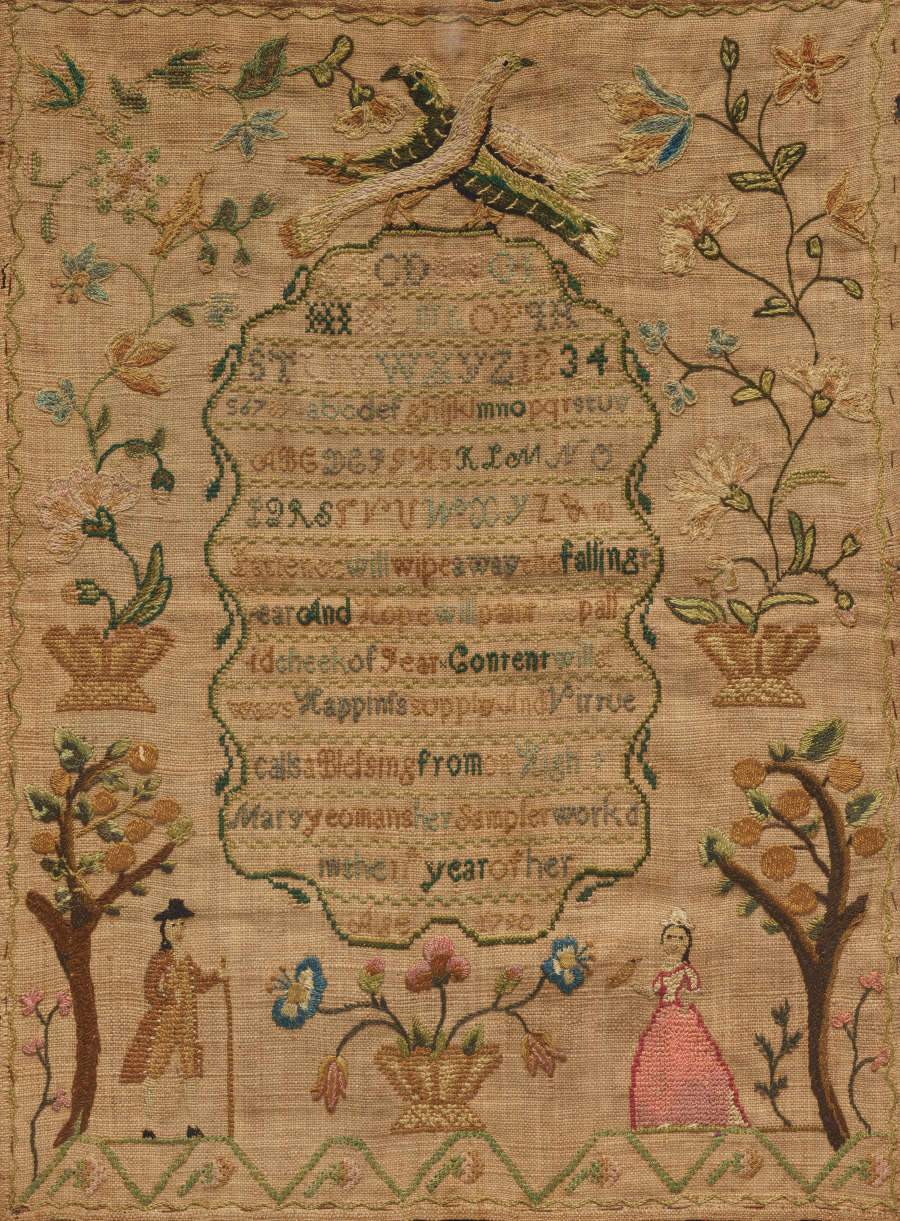 CD
HIKLMNOPQR
STUVWXYZ1234
567 abcdef ghijklmnopqrstuv
ABCDEFGHIKLMNO
PQRSTVUWXYZ&
Patience will wipe away the falling t
ear And Hope will paint pall
id cheek of Fear Content will
Happinſs supply And Virtue
calls a Bleſsing from on High
Mary yeomans her Sampler work d
in the year of her
Age